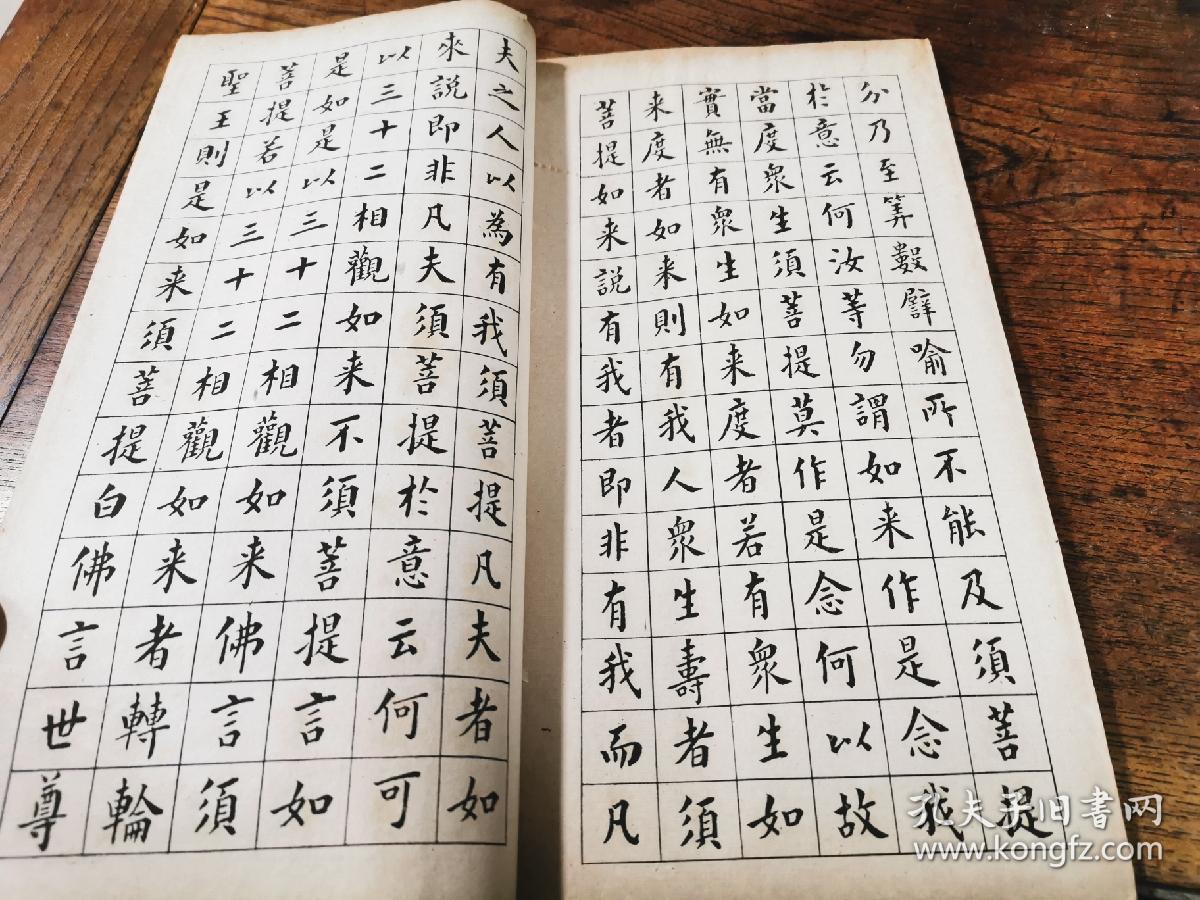 分乃至筭數譬喻所不能及須菩提
於意云何汝等勿謂如来作是念我
當度眾生須菩提莫作是念何以故
實無有眾生如来度者若有眾生如
来度者如来則有我人眾生壽者須
菩提如来說有我者即非有我而凡
夫之人以為有我須菩提凡夫者如
來說即非凡夫須菩提於意云何可
以三十二相觀如来不須菩提言如
是如是以三十二相觀如来佛言須
菩提若以三十二相觀如来者轉輪
聖王則是如来須菩提白佛言世尊
孔夫子旧书网
www.kongfz.com